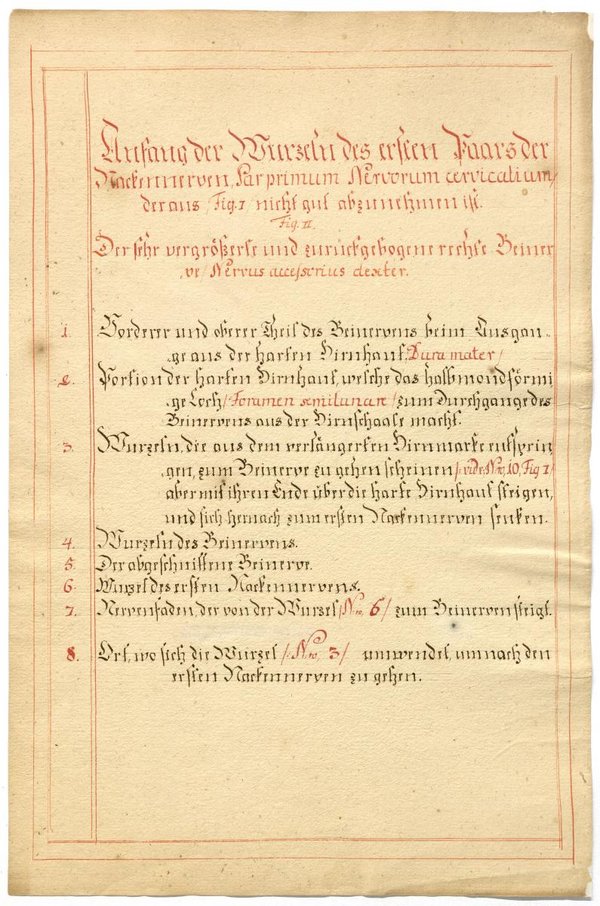 Anfang der Wurzeln des ersten Paars der
Nackennerven, Par primum Nervorum cervicalium,
der aus /Fig. I/ nicht gut abzunehmen ist.
Fig. II.
Der sehr vergrößerte und zurückgebogene rechte Beiner
ve /Nervus accessorius dexter.
1. Vorderer und oberer Theil des Beinervens beim Ausgan-
ge aus der harten Hirnhaut /Dura mater/
2. Portion der harten Hirnhaut, welche das halbmondförmi
ge Loch /Foramen semilunare/ zum Durchgange des
Beinervens aus der Hirnschaale macht.
3. Wurzeln, die aus dem verlängerten Hirnmarke entsprin
gen, zum Beinerve zu gehen scheinen /: vide Nro. 10, Fig I/
aber mit ihren Ende über die harte Hirnhaut steigen,
und sich hernach zum ersten Nackennerven senken.
4. Wurzeln des Beinervens.
5. Der abgeschnittene Beinerve.
6. Wurzel des ersten Nackennervens.
7. Nervenfaden, der von der Wurzel /Nro. 6/ zum Beinerven steigt.
8. Ort, wo sich die Wurzel /: Nro. 3/ umwendet, um nach den
ersten Nackennerven zu gehen.